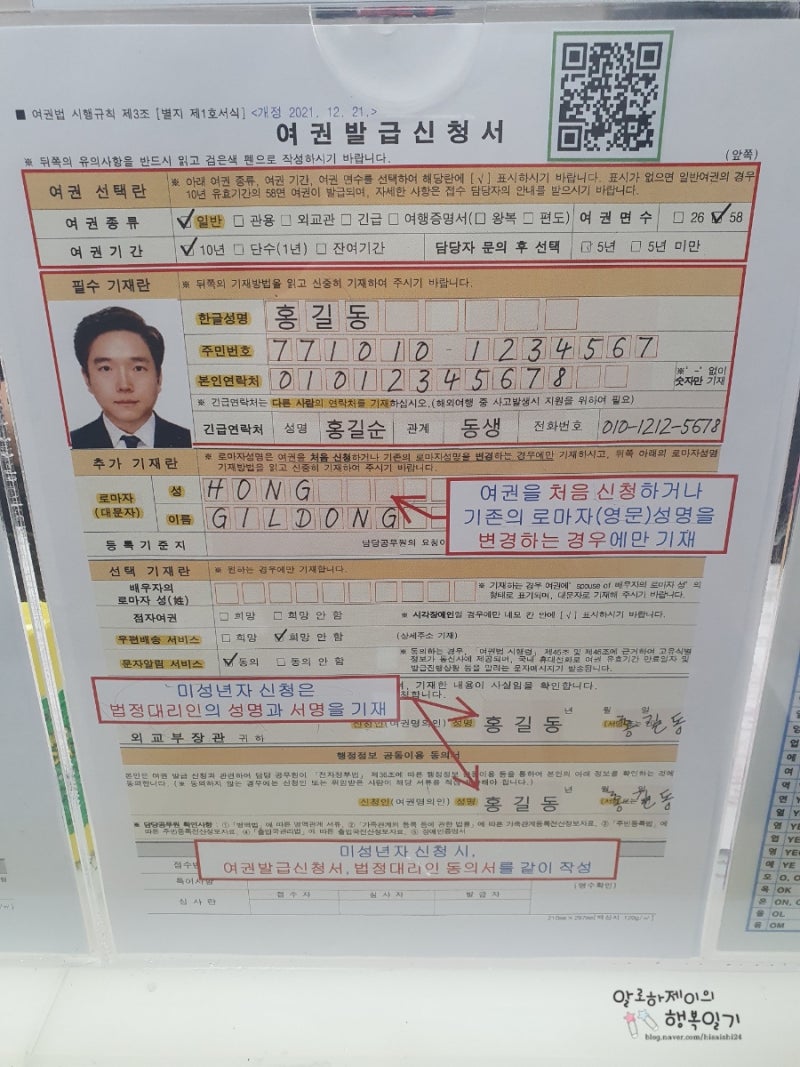 ■ 여권법 시행규칙 제3조 [별지 제1호서식] <개정 2021. 12. 21.>
여권발급신청서
※ 뒤쪽의 유의사항을 반드시 읽고 검은색 펜으로 작성하시기 바랍니다. (앞쪽)
여권 선택란 ※ 아래 여권 종류, 여권 기간, 여권 면수를 선택하여 해당란에 [√] 표시하시기 바랍니다. 표시가 없으면 일반여권의 경우
10년 유효기간의 58면 여권이 발급되며, 자세한 사항은 접수 담당자의 안내를 받으시기 바랍니다.
여권종류 ☑ 일반 □ 관용 □ 외교관 □ 긴급 □ 여행증명서(□ 왕복 □ 편도) 여권면수 □ 26 ☑ 58
여권기간 ☑ 10년 □ 단수(1년) □ 잔여기간 담당자 문의 후 선택 □ 5년 □ 5년 미만
필수 기재란 ※ 뒤쪽의 기재방법을 읽고 신중히 기재하여 주시기 바랍니다.
한글성명 홍길동
주민번호 771010-1234567
본인연락처 01012345678 ※'-' 없이
숫자만 기재
※ 긴급연락처는 다른 사람의 연락처를 기재하십시오.(해외여행 중 사고발생시 지원을 위하여 필요)
긴급연락처 성명 홍길순 관계 동생 전화번호 010-1212-5678
추가 기재란 ※ 로마자성명은 여권을 처음 신청하거나 기존의 로마자성명을 변경하는 경우에만 기재하시고, 뒤쪽 아래의 로마자성명
기재방법을 읽고 신중히 기재하여 주시기 바랍니다.
로마자
(대문자)
성 HONG
이름 GILDONG
여권을 처음 신청하거나
기존의 로마자(영문)성명을
변경하는 경우에만 기재
등록기준지 담당공무원의 요청이
선택 기재란 ※ 원하는 경우에만 기재합니다.
배우자의
로마자 성(姓)
※ 기재하는 경우 여권에 'spouse of 배우자의 로마자 성' 의
형태로 표기되며, 대문자로 기재해 주시기 바랍니다.
점자여권 □ 희망 □ 희망 안 함 ※ 시각장애인일 경우에만 네모 칸 안에 [√] 표시하시기 바랍니다.
우편배송 서비스 □ 희망 ☑ 희망 안 함 (상세주소 기재)
문자알림 서비스 ☑ 동의 □ 동의 안 함
※ 동의하는 경우, 「여권법 시행령」 제45조 및 제46조에 근거하여 고유식별
정보가 통신사에 제공되며, 국내 휴대전화로 여권 유효기간 만료일자 및
발급진행상황 등을 알리는 문자메시지가 발송됩니다.
기재한 내용이 사실임을 확인합니다.
미성년자 신청은
법정대리인의 성명과 서명을 기재
년 월 일
신청인(여권명의인) 성명 홍길동 홍길동
외교부장관 귀하
행정정보 공동이용 동의서
본인은 여권 발급 신청과 관련하여 담당 공무원이 「전자정부법」 제36조에 따른 행정정보 공동이용 등을 통하여 본인의 아래 정보를 확인하는 것에
동의합니다.
년 월
신청인(여권명의인) 성명 홍길동 홍길동
※ 담당공무원 확인사항: ①「병역법」에 따른 병역관계 서류, ②「가족관계의 등록 등에 관한 법률」에 따른 가족관계등록전산정보자료, ③「주민등록법」에
따른 주민등록전산정보자료, ④「출입국관리법」에
미성년자 신청 시,
여권발급신청서, 법정대리인 동의서를 같이 작성
특이사항
심사란 접수자 심사자 발급자
210mm×297mm[백상지 120g/㎡]
YE
OK
ON,
OL
OM
알로하제이의
행복일기
blog.naver.com/hisaishi24